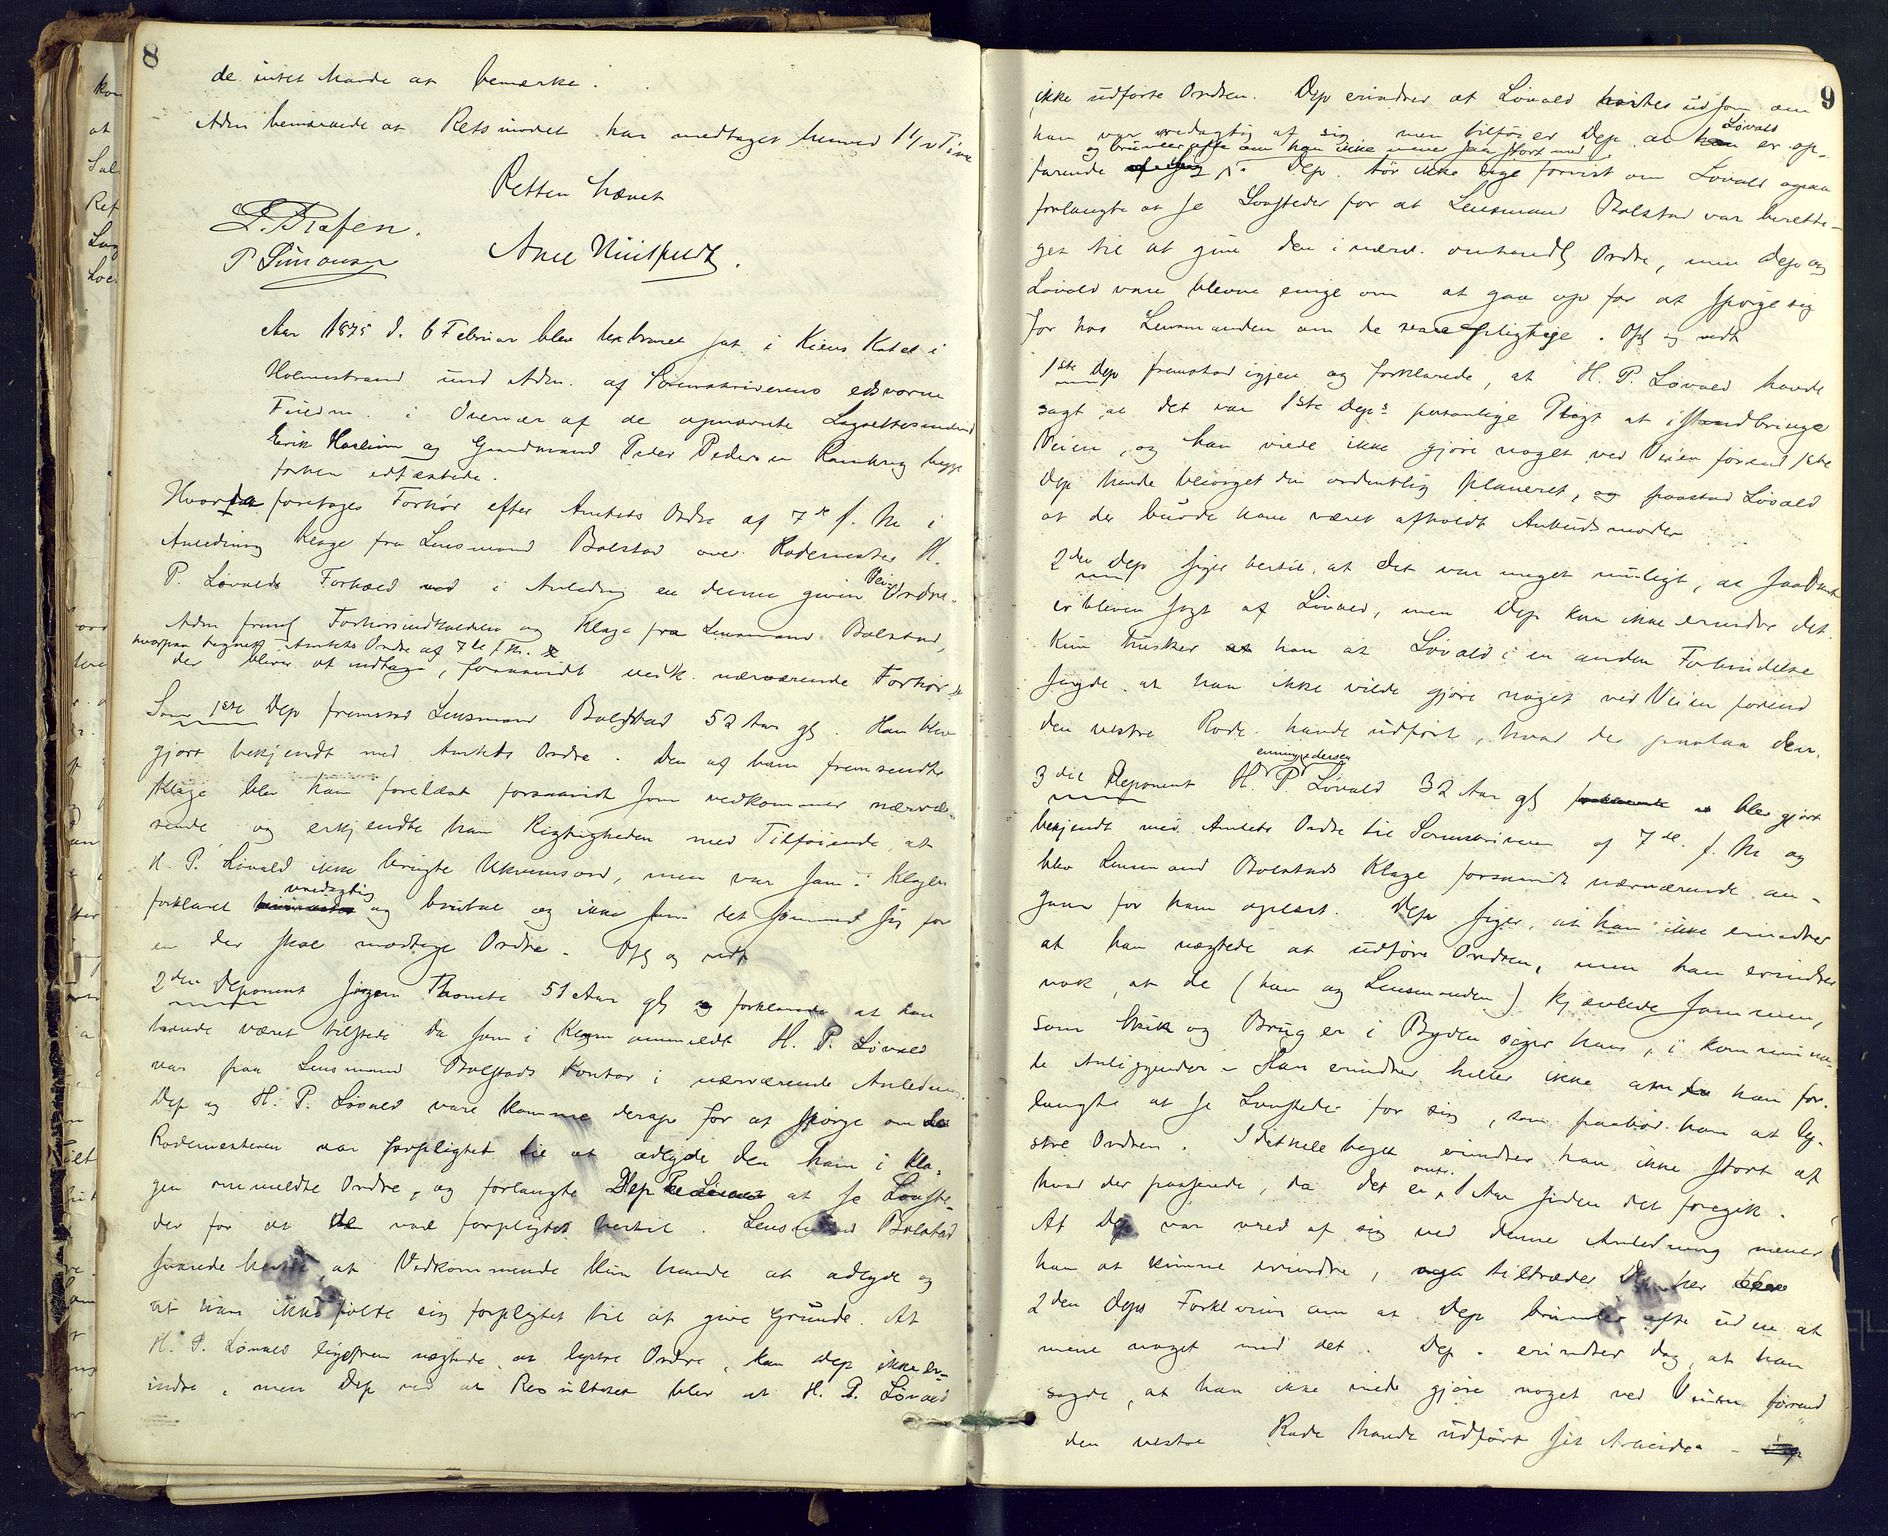 8
de intet havde at bemærke.
Adm bemærkede at Retsmødet har medtaget henved 1 1/2 Time
Retten hævet
P Simonsen
Aar 1875 d. 6 Februar blev Extraret sat i Hotel i
Holmestrand med Adm. af Sorenskriverens edsvorne
Fuldm. i Overvær af de opnævnte Lagrettesmænd
Erik og Gaardmand Peder Pedersen begge
forhen edfæstede.
Hvorda foretages Forhør efter Amtets Ordre af 7de f. M. i
Anledning Klage fra Lensmand Bolstad over Rodemester H.
P. Løvalds Forhold ved i Anledning en denne given Vei-Ordre.
Adm freml Forhørsindkaldelse og Klage fra Lensmand Bolstad,
hvorpaa tegnet Amtets Ordre af 7de f. M.
der bliver at indtage, forsaavidt vedk. nærværende Forhør
Som 1ste Dep fremstod Lensmand Bolstad 52 Aar gl. Han blev
gjort bekjendt med Amtets Ordre. Den af ham fremsendte
Klage blev ham forelæst forsaavidt som vedkommer nærvæ-
rende og erkjendte han Rigtigheden med Tilføiende, at
H. P. Løvald ikke brugte Ukvemsord, men var som i Klagen
forklaret vredagtig og brutal og ikke som det sømmed sig for
en der skal modtage Ordre. Opl og vedt
2den Deponent Jørgen 51 Aar gl forklarede at han
havde været tilstede da som i Klagen ommeldt H. P. Løvald
var paa Lensmand Bolstads Kontor i nærværende Anledning.
Dep og H. P. Løvald vare komne derop for at spørge om
Rodemesteren var forpligtet til at adlyde den ham i Kla-
gen ommeldte Ordre, og forlangte Dep at se Lovste-
der for at de var forpligtet hertil. Lensmand Bolstad
svarede hertil, at Vedkommende kun havde at adlyde og
at han ikke følte sig forpligtet til at give Grunde. At
H. P. Løvald ligefrem nægtede at lystre Ordre, kan Dep ikke er-
indre, men Dep ved at Resultatet blev at H. P. Løvald
9
ikke udførte Ordren. Dep erindrer at Løvald hørtes ud som om
han var vredagtig af sig, men tilføier Dep. at Løvald er op-
og brummer ofte om han ikke mener saa stort med
farende Dep. tør ikke sige forvist om Løvald ogsaa
forlangte at se Lovsteder for at Lensmand Bolstad var beretti-
get til at give den i nærv. omhandl Ordre, men Dep og
Løvald vare blevne enige om at gaa op for at spørge sig
for hos Lensmanden om de vare pligtige. Opl og vedt
1ste Dep fremstod igjen og forklarede, at H. P. Løvald havde
sagt at det var 1ste Deps personlige Pligt at istandbringe
Veien, og han vilde ikke gjøre noget ved Veien førend 1ste
Dep havde besørget den ordentlig planeret, og paastod Løvald
at der burde have været afholdt Anbudsmøder
2den Dep siger hertil, at det var meget muligt, at saadant
er bleven sagt af Løvald, men Dep kan ikke erindre det.
Kun husker han at Løvald i en anden Forbindelse
sagde at han ikke vilde gjøre noget ved Veien førend
den vestre Rode havde udført, hvad der paalaa den.
3die Deponent H. P. Løvald 32 Aar gl blev gjort
bekjendt med Amtets Ordre til Sorenskriveren af 7de f. M. og
blev Lensmand Bolstads Klage forsaavidt nærværende an-
gaar for ham oplæst. Dep siger, at han ikke erindrer
at han nægtede at udføre Ordren, men han erindrer
nok, at de (han og Lensmanden) kjævlede sammen,
som Skik og Brug er i Bygden siger han, i kommuna-
le Anliggender. Han erindrer heller ikke at han for-
langte at se Lovsteder for sig, som paabød ham at ly-
stre Ordren. I det hele taget erindrer han ikke stort af
hvad der passerede, da det er omtr. 1 Aar siden det foregik.
At Dep var vred af sig ved denne Anledning mener
han at kunne erindre, tiltræder Dep her
2den Deps Forklaring om at Dep brummer ofte uden at
mene noget med det. Dep. erindrer dog, at han
sagde, at han ikke vilde gjøre noget ved Veien førend
den vestre Rode havde udført sit Arbeide.